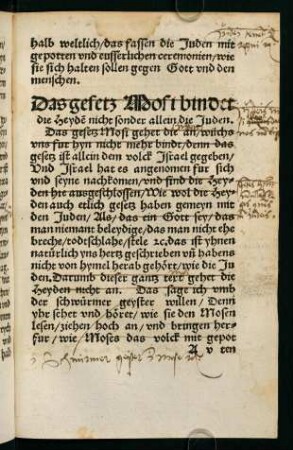 halb weltlich/das fassen die Juden mit
gepotten vnd eusserlichen ceremonien/wie
sie sich halten sollen gegen Gott vnd den
menschen.
Das gesetz Mosi bindet
die Heyden nicht sonder allein die Juden.
Das gesetz Mosi gehet die an/wilchs
vns fur hyn nicht mehr bindt/denn das
gesetz ist allein dem volck Israel gegeben/
Vnd Israel hat es angenomen fur sich
vnd seyne nachkomen/vnd sind die Hey-
den hye ausgeschlossen/Wie wol die Hey-
den auch etlich gesetz haben gemeyn mit
den Juden/Als/das ein Gott sey/das
man niemant beleydige/das man nicht ehe
breche/todtschlahe/stele ꝛc.das ist yhnen
natürlich yns hertz geschrieben vñ habens
nicht von hymel herab gehört/wie die Ju
den.Darumb dieser gantz text gehet die
Heyden nicht an. Das sage ich vmb
der schwürmer geyster willen/ Denn
yhr sehet vnd höret/ wie sie den Mosen
lesen/ziehen hoch an/ vnd bringen her-
fur/ wie Moses das volck mit gepot
A v ten